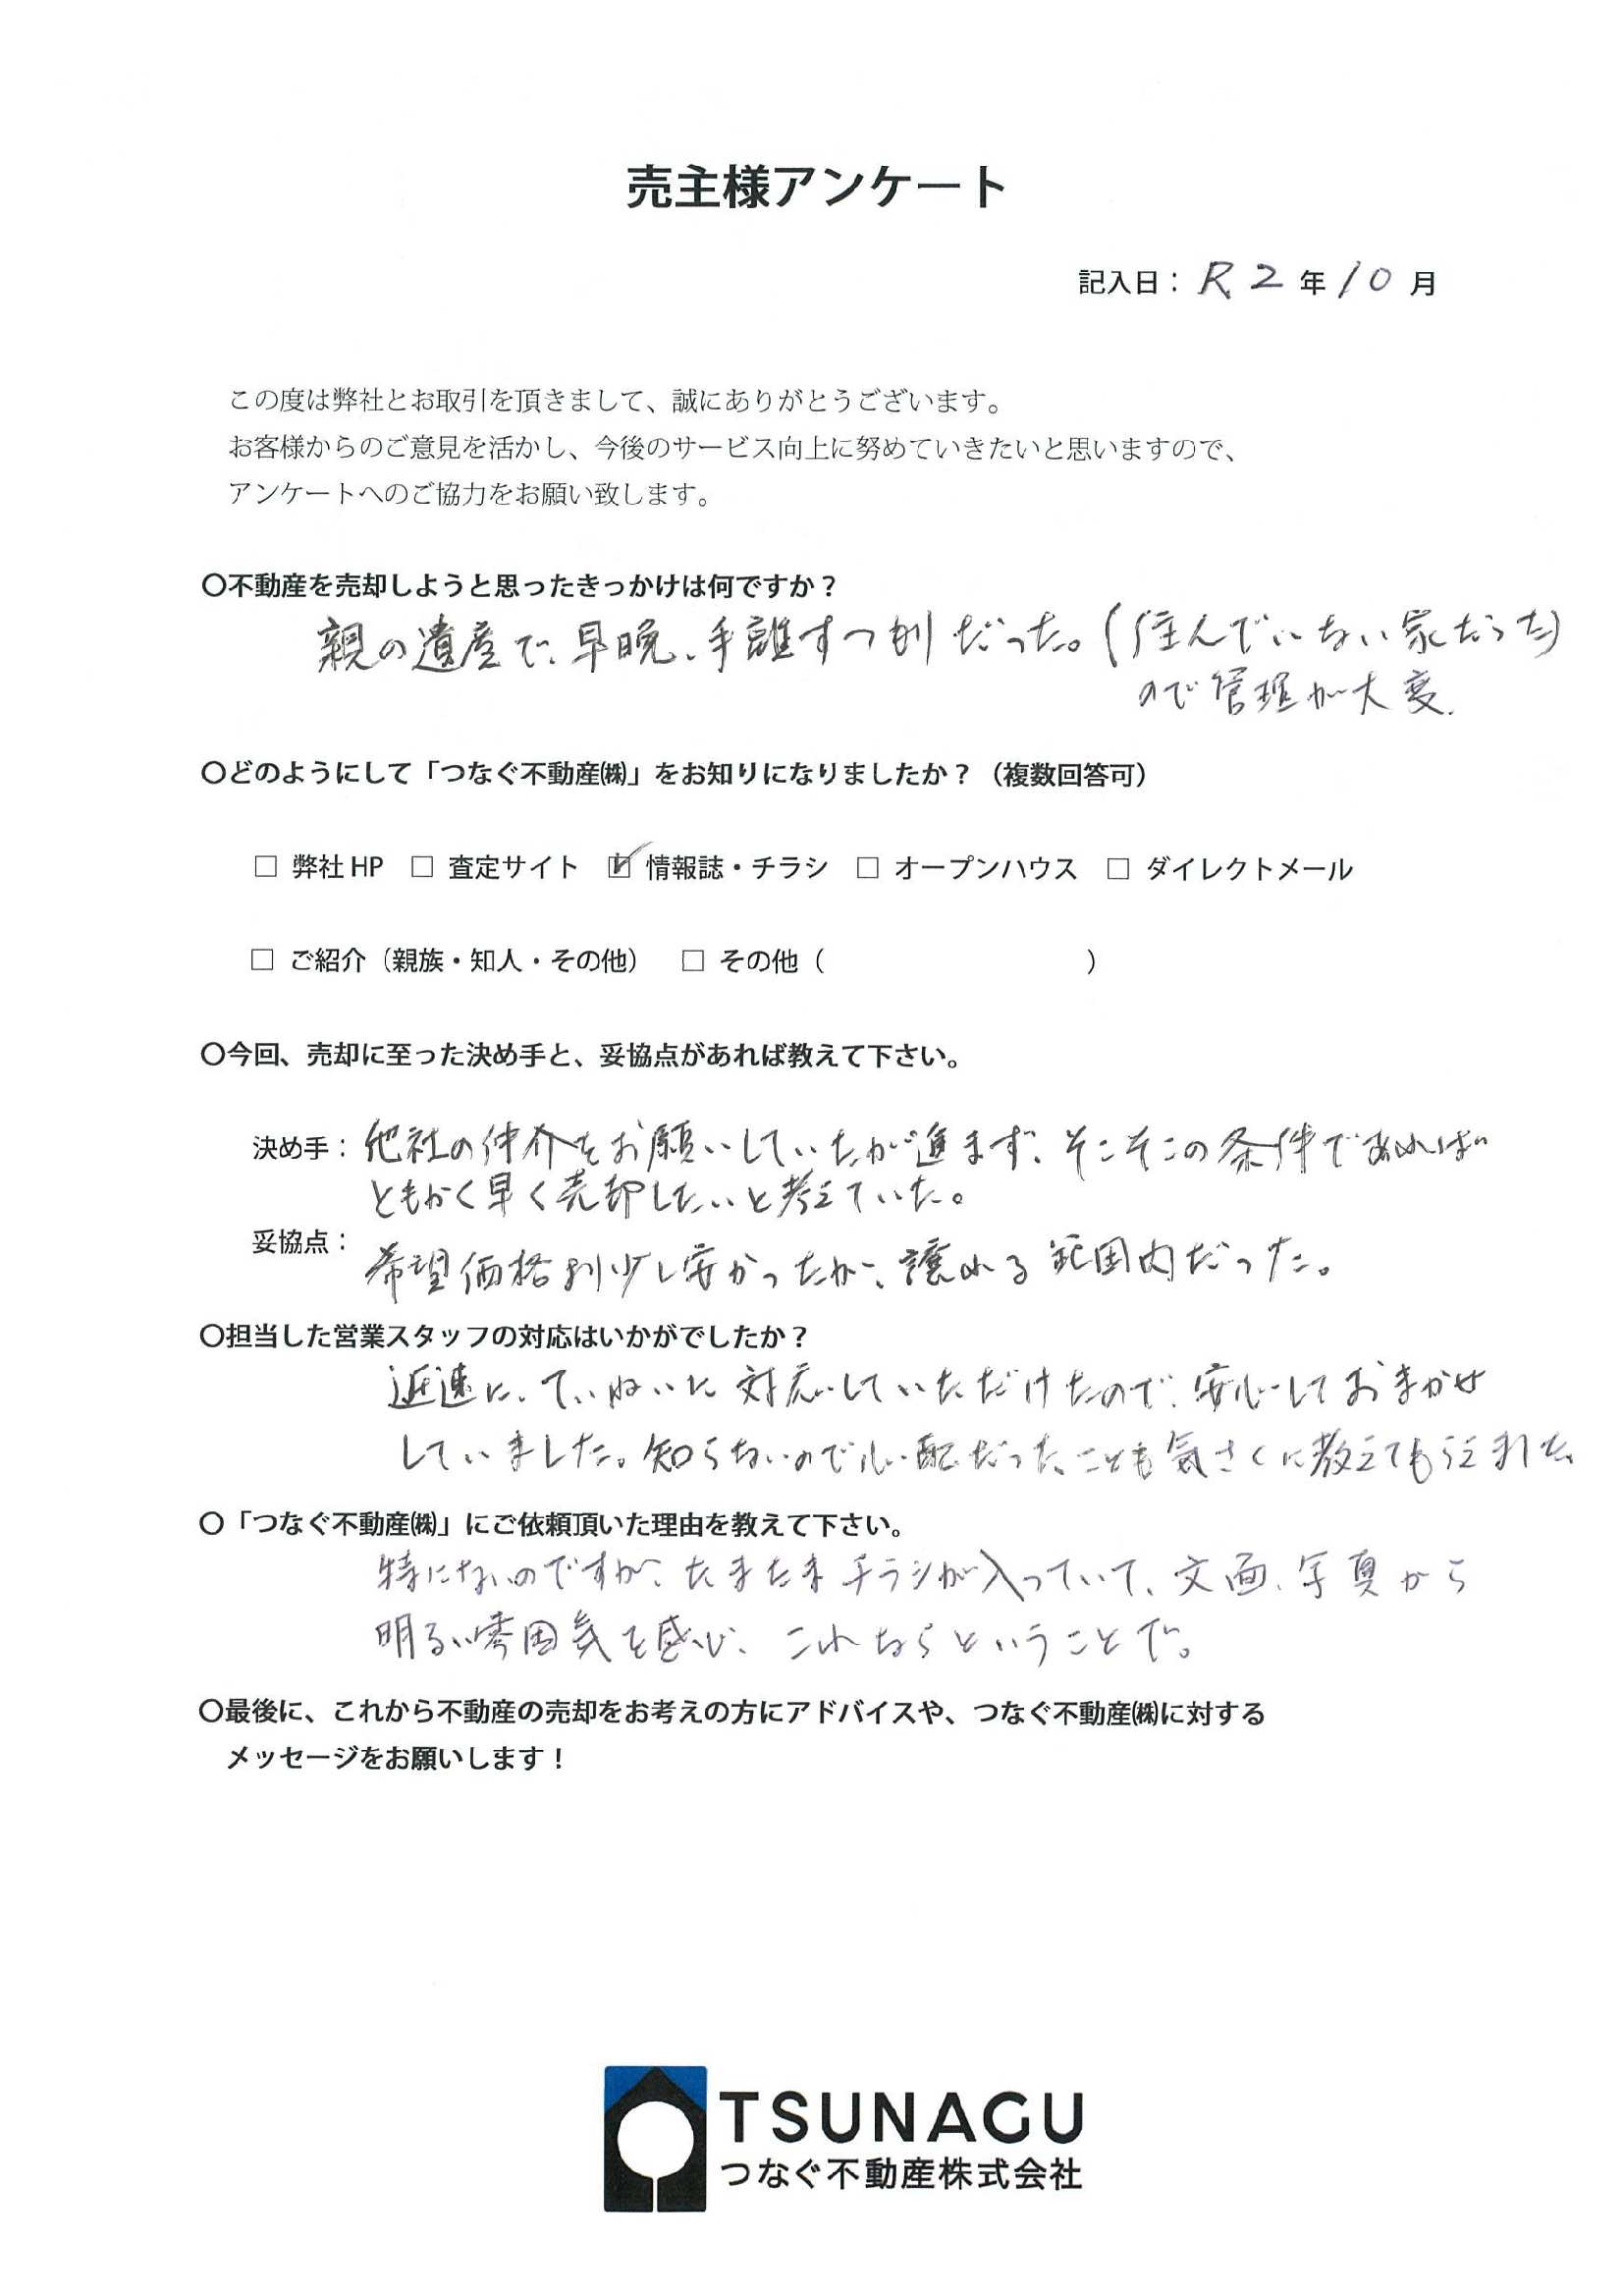 売主様アンケート
記入日：R2年10月
この度は弊社とお取引を頂きまして、誠にありがとうございます。
お客様からのご意見を活かし、今後のサービス向上に努めていきたいと思いますので、
アンケートへのご協力をお願い致します。
〇不動産を売却しようと思ったきっかけは何ですか？
親の遺産で、早晩、手離すつもりだった。(住んでいない家だった)
ので管理が大変.
〇どのようにして「つなぐ不動産㈱」をお知りになりましたか？（複数回答可）
□ 弊社HP □ 査定サイト ☑ 情報誌・チラシ □ オープンハウス □ ダイレクトメール
□ ご紹介（親族・知人・その他） □ その他（ ）
〇今回、売却に至った決め手と、妥協点があれば教えて下さい。
決め手：他社の仲介をお願いしていたが進まず、そこそこの条件であれば
ともかく早く売却したいと考えていた。
妥協点：
希望価格より少し安かったが、譲れる範囲内だった。
〇担当した営業スタッフの対応はいかがでしたか？
迅速に、ていねいに対応していただけたので、安心しておまかせ
していました。知らないので心配だったことも気さくに教えてもらえました。
〇「つなぐ不動産㈱」にご依頼頂いた理由を教えて下さい。
特にないのですが、たまたまチラシが入っていて、文面、写真から
明るい雰囲気を感じ、これならということで。
〇最後に、これから不動産の売却をお考えの方にアドバイスや、つなぐ不動産㈱に対する
メッセージをお願いします！
TSUNAGU
つなぐ不動産株式会社